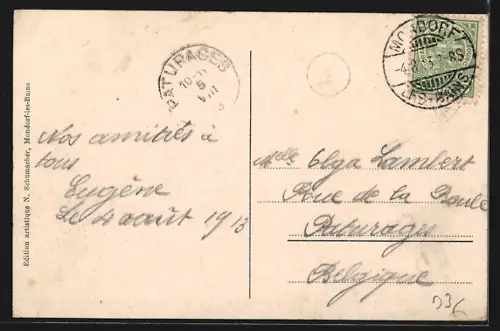 Edition artistique N. Schumacher, Mondorf-les-Bains
PATURAGES
10-11
5
VIII
MONDORF
-4.8.13
LES-BAINS
Nos amitiés à
tous
Eugène
Le 4 août 1913
Melle Olga Lambert
Rue de la Boule
Paturages
Belgique
D36